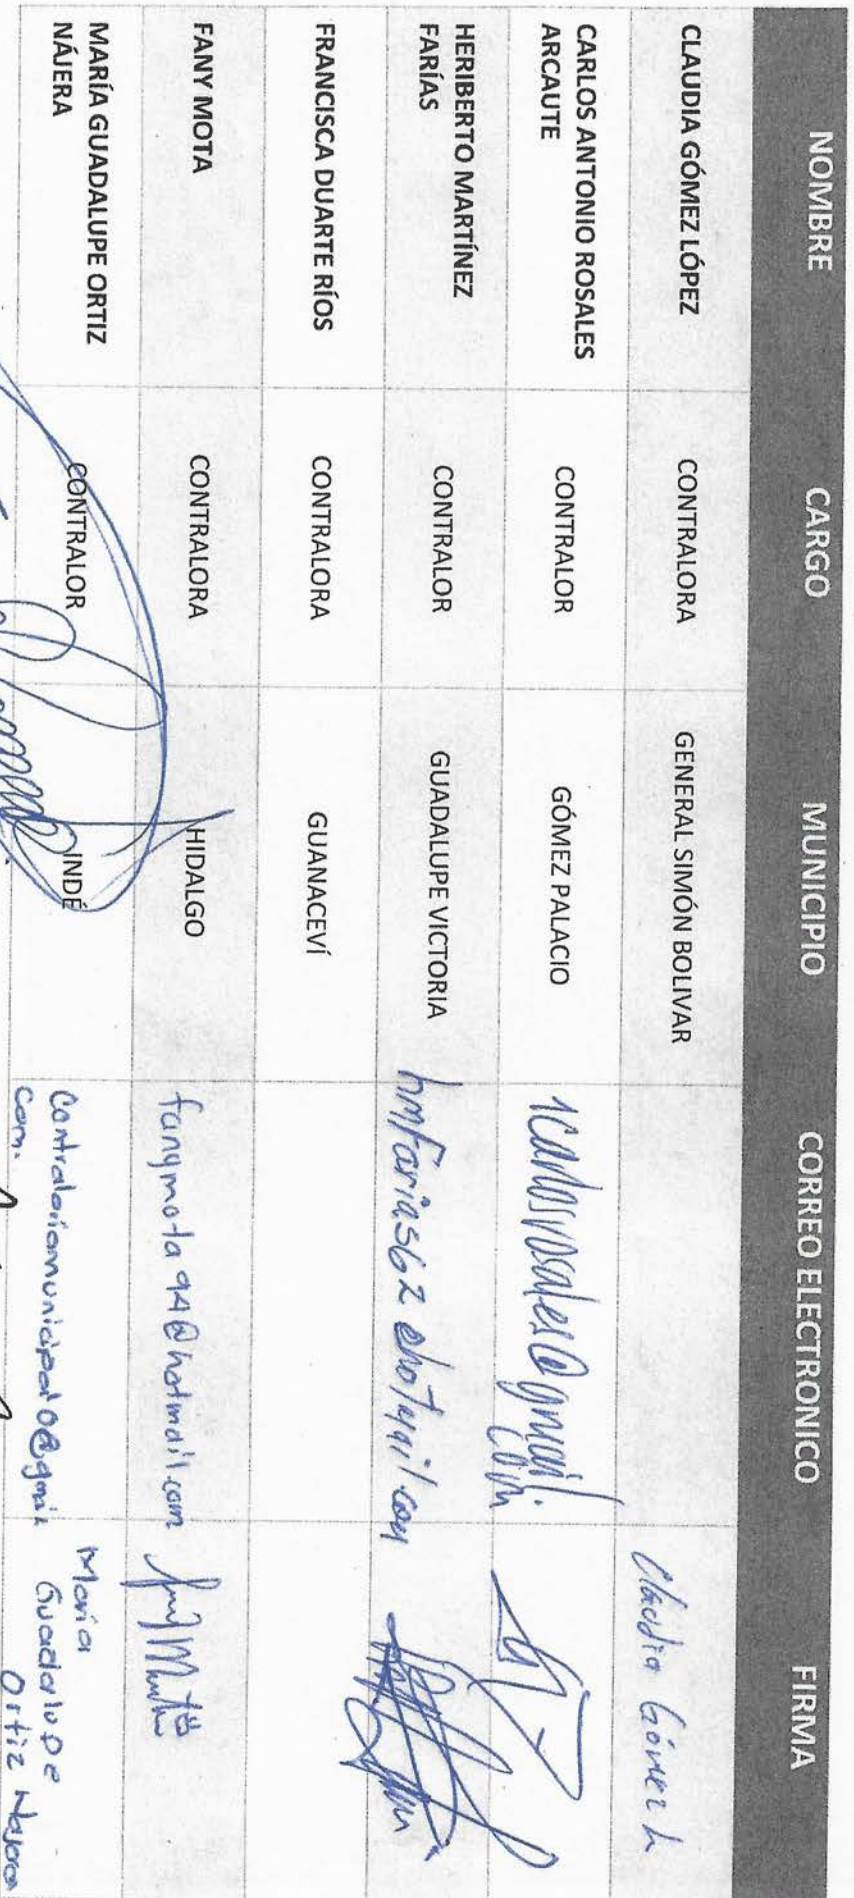 NOMBRE CARGO MUNICIPIO CORREO ELECTRONICO FIRMA
CLAUDIA GÓMEZ LÓPEZ CONTRALORA GENERAL SIMÓN BOLIVAR Claudia Gómez L
CARLOS ANTONIO ROSALES
ARCAUTE
CONTRALOR GÓMEZ PALACIO 1carlosrosales@gmail.
com
HERIBERTO MARTÍNEZ
FARÍAS
CONTRALOR GUADALUPE VICTORIA hmfarias62@hotmail.com
FRANCISCA DUARTE RÍOS CONTRALORA GUANACEVÍ
FANY MOTA CONTRALORA HIDALGO fanymota94@hotmail.com
MARÍA GUADALUPE ORTIZ
NÁJERA
CONTRALOR INDÉ Contraloriamunicipal0@gmail
com.
María
Guadalupe
Ortiz Najera